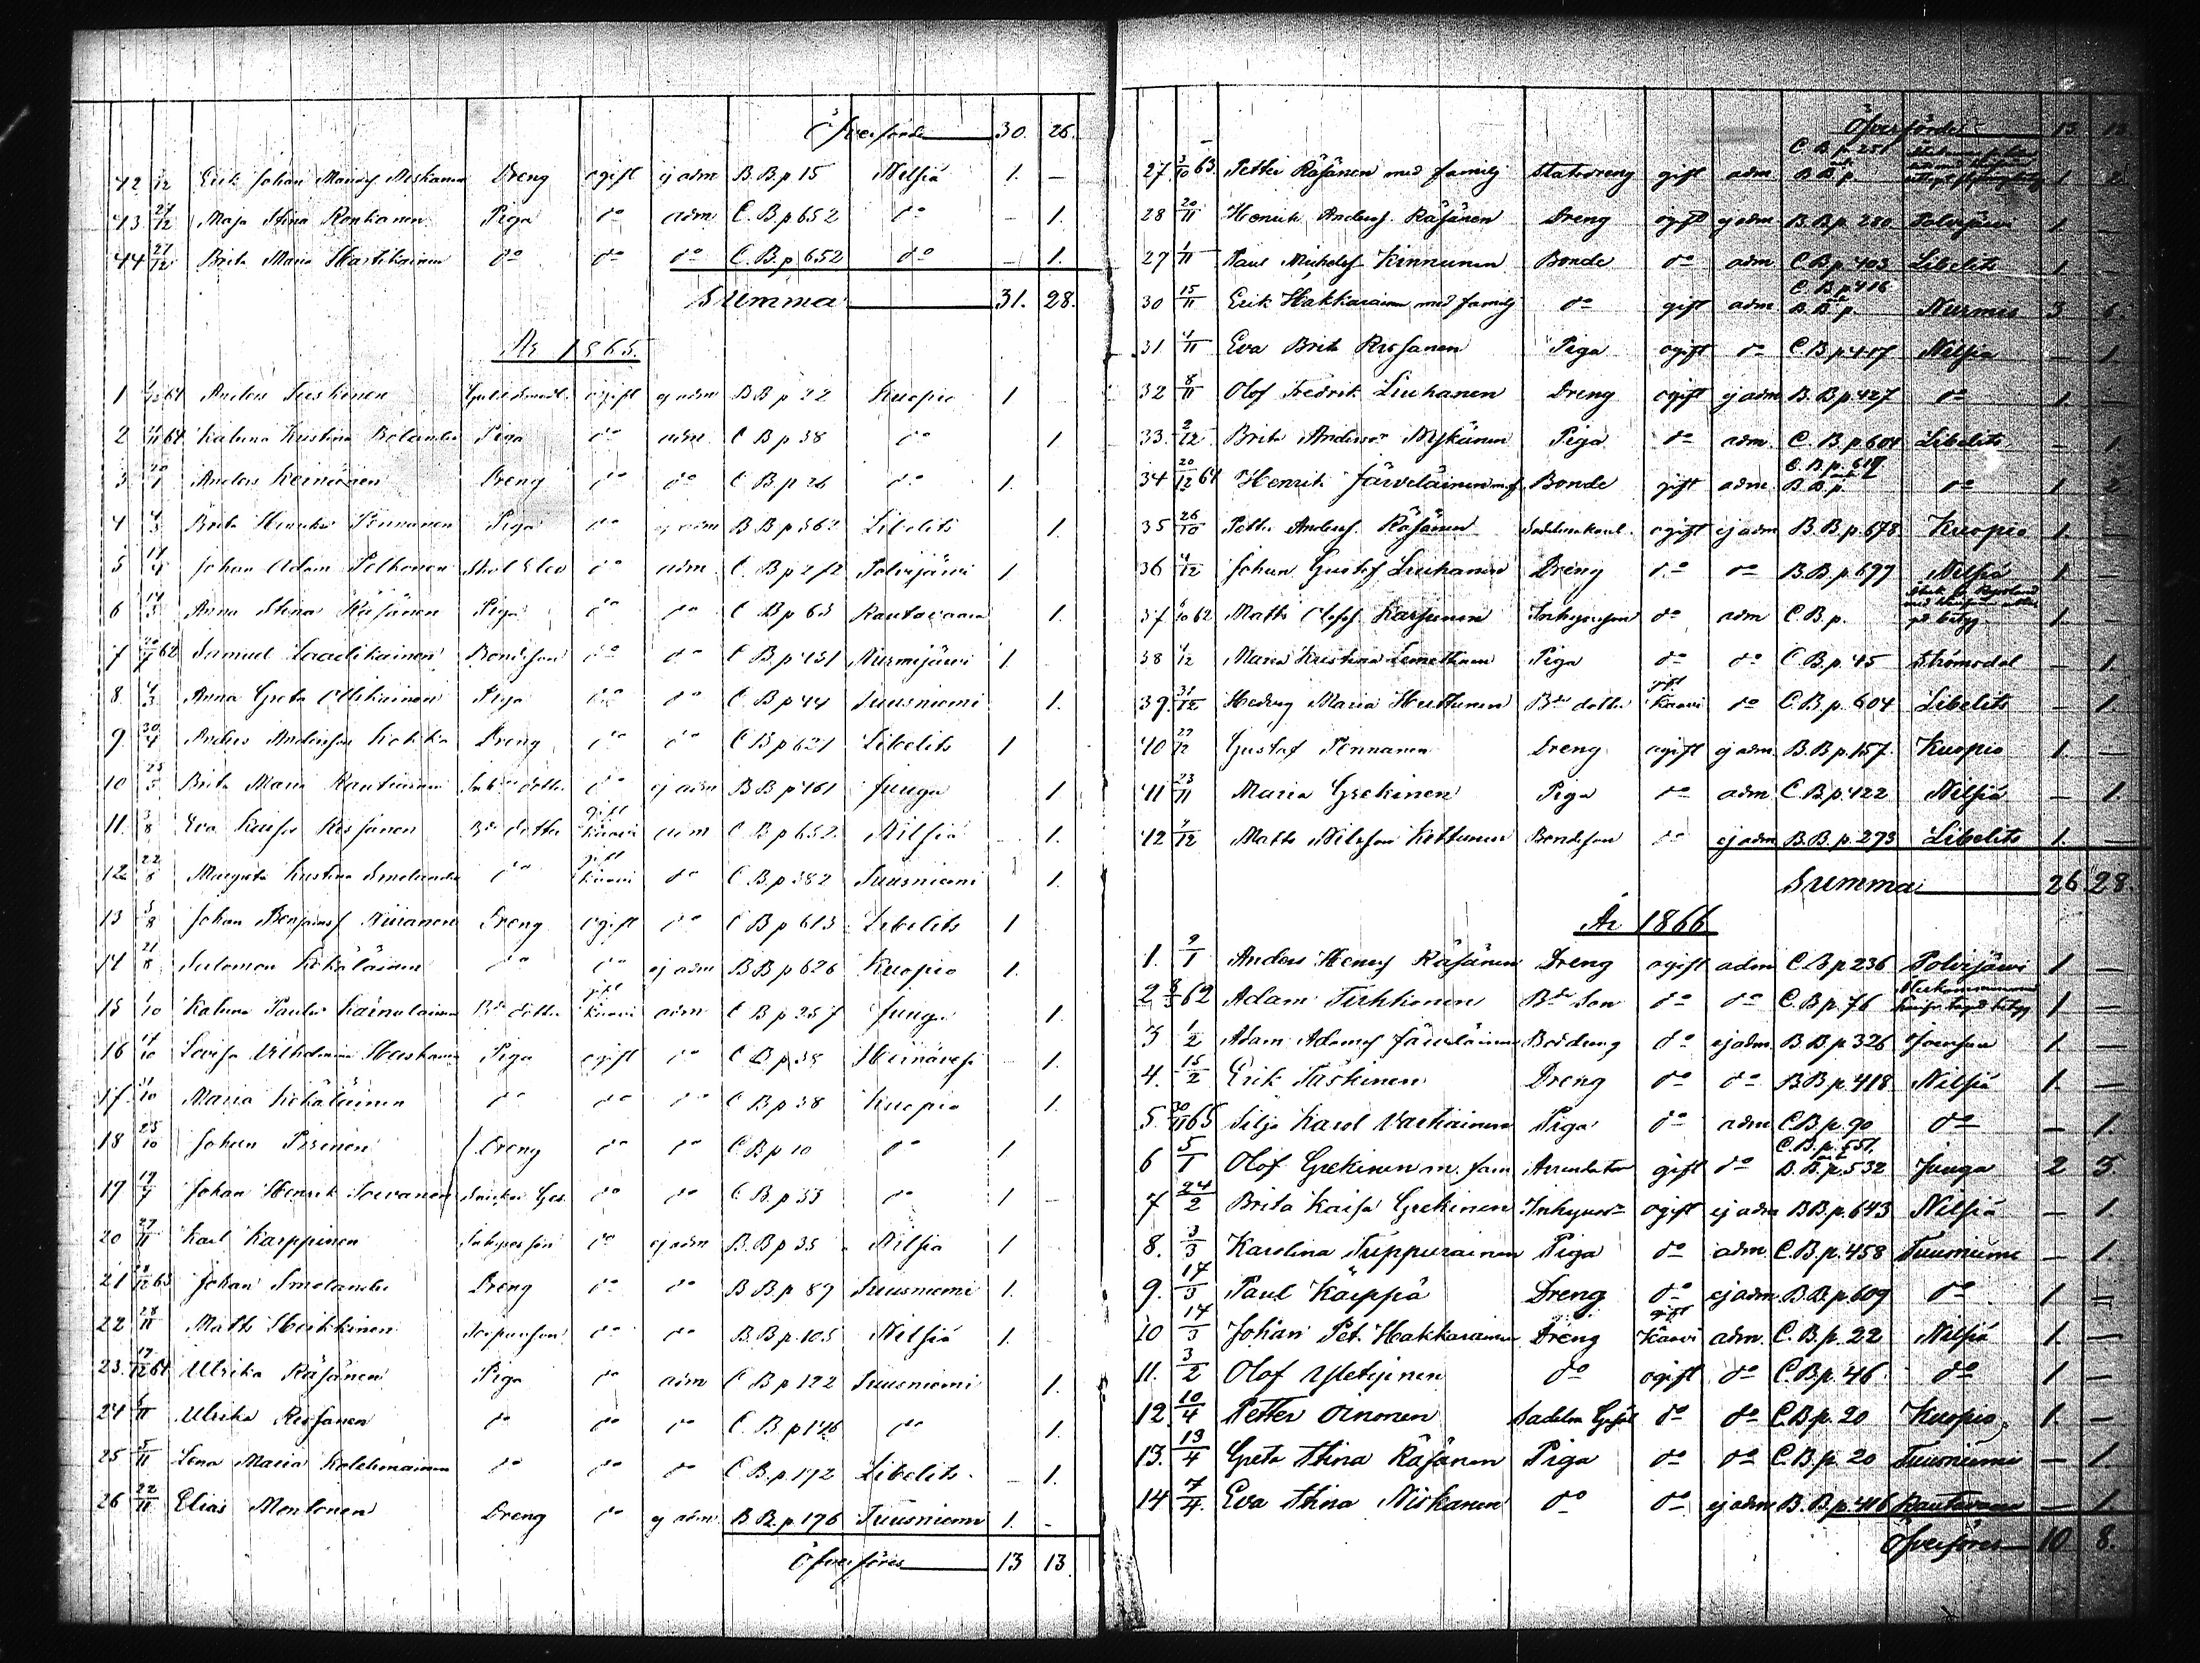 Öfverförde 30. 26.
42 /12 Erik Johan Mandf Miskanen Dreng ogift ej adm B.B.p 15 Nilsiä 1. —
43 27/12 Maja Stina Ronkanen Piga do adm C.B.p 652 do — 1.
44 27/12 Brita Maria Hartikainen do do do C.B.p 652 do — 1.
Summa 31. 28.
År 1865.
1 64 Anders Suskonen ogift ej adm B B p 22 Kuopio 1
2 64 Katrina Kristina Bolander Piga do adm C B p 38 do 1
3 20/1 Anders Keinänen Dreng do do C B p 26 do 1.
4 Brita Pennanen Piga do ej adm B B p 362 Libelits 1.
5 Johan Adam Pelkonen Skol Elev do adm. C. B p 212 Polvijärvi 1
6 Anna Stina Räsänen Piga do do C B p 63 Rautavaara 1.
7 62 Samuel Laatikainen Bondeson do do C B p 431 Nurmijärvi 1
8 Anna Greta Ollikainen Piga do do C B p 44 Tuusniemi 1.
9 30/4 Anders Andersson Kokko Dreng do do C B p 621 Libelits 1
10 Brita Maria Rautiainen dotter do ej adm B B p 461 Juuga 1
11. /8 Eva Kaisa Rissanen Bde dotter gift Kaavi adm C B p 652 Nilsiä — 1.
12 22/8 Margreta Kristina Smolander do gift Kaavi do C B p 382 Tuusniemi 1.
13 /8 Johan Benjamsf Niiranen Dreng ogift do C B p 613 Libelits 1
14 21/8 Salomon Kokäläinen do do ej adm B B p 626 Kuopio 1.
15 /10 Katrina Paulsd Kärnalainen Bde dotter gift Kaavi adm C B p 257 Juuga 1.
16 /10 Lovisa Vilhelmina Piga ogift do C B p 38 Heinävesi 1.
17. /10 Maria Kokäläinen do do do C B p 38 Kuopio 1.
18 25/10 Johan Pirinen Dreng do do C B p 10 do 1
19 Johan Henrik Toivanen Snickar Ges. do do C B p 33 do 1 —
20 27/11 Karl Karppinen do ej adm B.B p 35 Nilsiä 1
21 63 Johan Smolander Dreng do do B B p 89 Tuusniemi 1.
22 28/11 Matts Heikkinen do do B.B p. 105 Nilsiä 1.
23. 64 Ulrika Räsänen Piga do adm C B p 122 Tuusniemi 1.
24 /11 Ulrika Rissanen do do do C. B p 146 do 1.
25 5/11 Lena Maria Kolehmainen do do do C B. p 172 Libelits — 1.
26 22/11 Elias Montonen Dreng do ej adm B B. p 176 Tuusniemi 1. -
Öfverföres 13 13.
Öfverförde 13 13
27 /10 63 Petter Räsänen med familj Statdreng gift adm C. B. p. 251 och B B p. 1 2
28 20/11 Henrik Andersf Räsänen Dreng ogift ej adm B.B p. 280 Polvijärvi 1 —
29 1/11 Paul Michelsf Kinnunen Bonde do adm C B p. 403 Libelits 1 —
30 15/11 Erik Hakkarainen med familj do gift adm C. B p 416 B. B p. Nurmis 3 6.
31 /11 Eva Brita Rissanen Piga ogift do C. B p 417 Nilsiä — 1
32 8/11 Olof Fredrik Liuhanen Dreng ogift ej adm B. B p 427 do 1. —
33. 2/12 Brita Andersdr Nykänen Piga do adm. C. B. p. 604 Libelits — 1.
34 20/12 64 Henrik Järveläinen m f Bonde gift adm C. B. p. 619 och B. B. p. do 1 2
35 26/10 Petter Andersf Räsänen ogift ej adm B B. p. 678 Kuopio 1. —
36 4/12 Johan Gustaf Liuhanen Dreng do do B.B. p. 697 Nilsiä 1. —
37 /10 62 Matts Olofsf Karhunen do adm C. B. p. 1. —
38 1/12 Maria Kristina Lemettinen Piga do do C. B. p. 45 Strömsdal — 1.
39. 31/12 Hedvig Maria Huttunen Bde dotter gift Kaavi do C. B. p. 604 Libelits — 1.
40 27/12 Gustaf Pennanen Dreng ogift ej adm B. B. p. 157. Kuopio 1. —
41 23/11 Maria Grekinen Piga do adm C. B. p. 422 Nilsiä — 1.
42 /12 Matts Nilsson Kettunen Bondeson do ej adm B. B. p. 273 Libelits 1. —
Summa 26 28.
År 1866
1. 9/1 Anders Henrsf Räsänen Dreng ogift adm C B p 236 Polvijärvi 1 —
2 62 Adam Tirkkonen Bde Son do do C. B p. 76 1 —
3 1/2 Adam Adamsf Järveläinen do ej adm. B. B p. 326 1. —
4. 15/2 Erik Täskinen Dreng do do B B p. 418. Nilsiä 1. —
5 30/11 65 Silja Karol Vartiainen Piga do adm C B. p. 90 do — 1.
6 5/1 Olof Grekinen m. fam Arrendator gift do C. B. p. 551. B. B. p. 532 Juuga 2 3.
7 24/2 Brita Kaisa Grekinen ogift ej adm B B. p. 643 Nilsiä — 1
8. 3/3 Karolina Tuppurainen Piga do adm. C. B. p. 458 Tuusniemi — 1.
9. 17/3 Paul Karppä Dreng do ej adm. B. B. p. 609 do 1 —
10 17/3 Johan Pet. Hakkarainen Dreng gift Kaavi adm. C. B. p. 22 Nilsiä 1. —
11. 3/2 Olof do ogift do C. B p. 46 do 1 —
12. 10/4 Petter Oinonen Sadelm Gesäl do do C. B p. 20 Kuopio 1. —
13. 13/4 Greta Stina Räsänen Piga do do C. B p. 20 Tuusniemi — 1
14 7/4 Eva Stina Niskanen do do ej adm B. B p. 416 Rautavaara — 1.
Öfverföres 10 8.